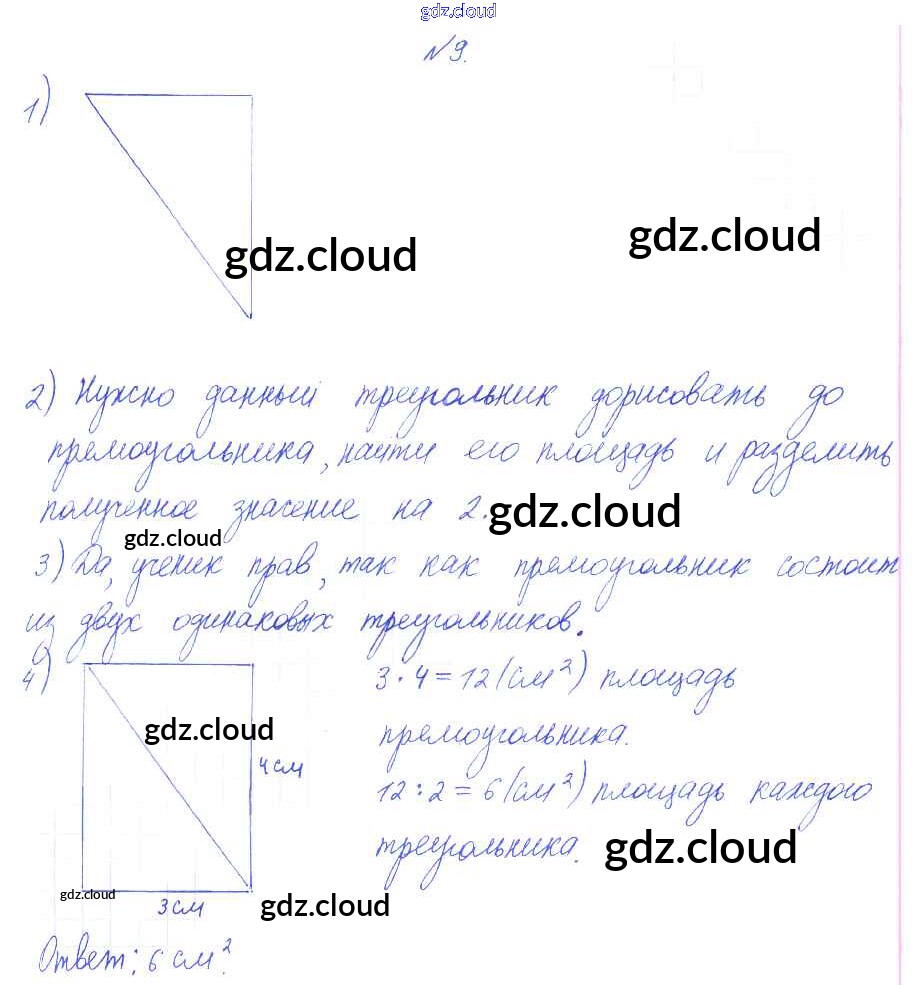 gdz.cloud
№9.
1)
gdz.cloud gdz.cloud
2) Нужно данный треугольник дорисовать до
прямоугольника, найти его площадь и разделить
полученное значение на 2. gdz.cloud
gdz.cloud
3) Да, ученик прав, так как прямоугольник состоит
из двух одинаковых треугольников.
4) 3 · 4 = 12 (см²) площадь
gdz.cloud прямоугольника.
4 см 12 : 2 = 6 (см²) площадь каждого
треугольника. gdz.cloud
gdz.cloud 3 см gdz.cloud
Ответ: 6 см².